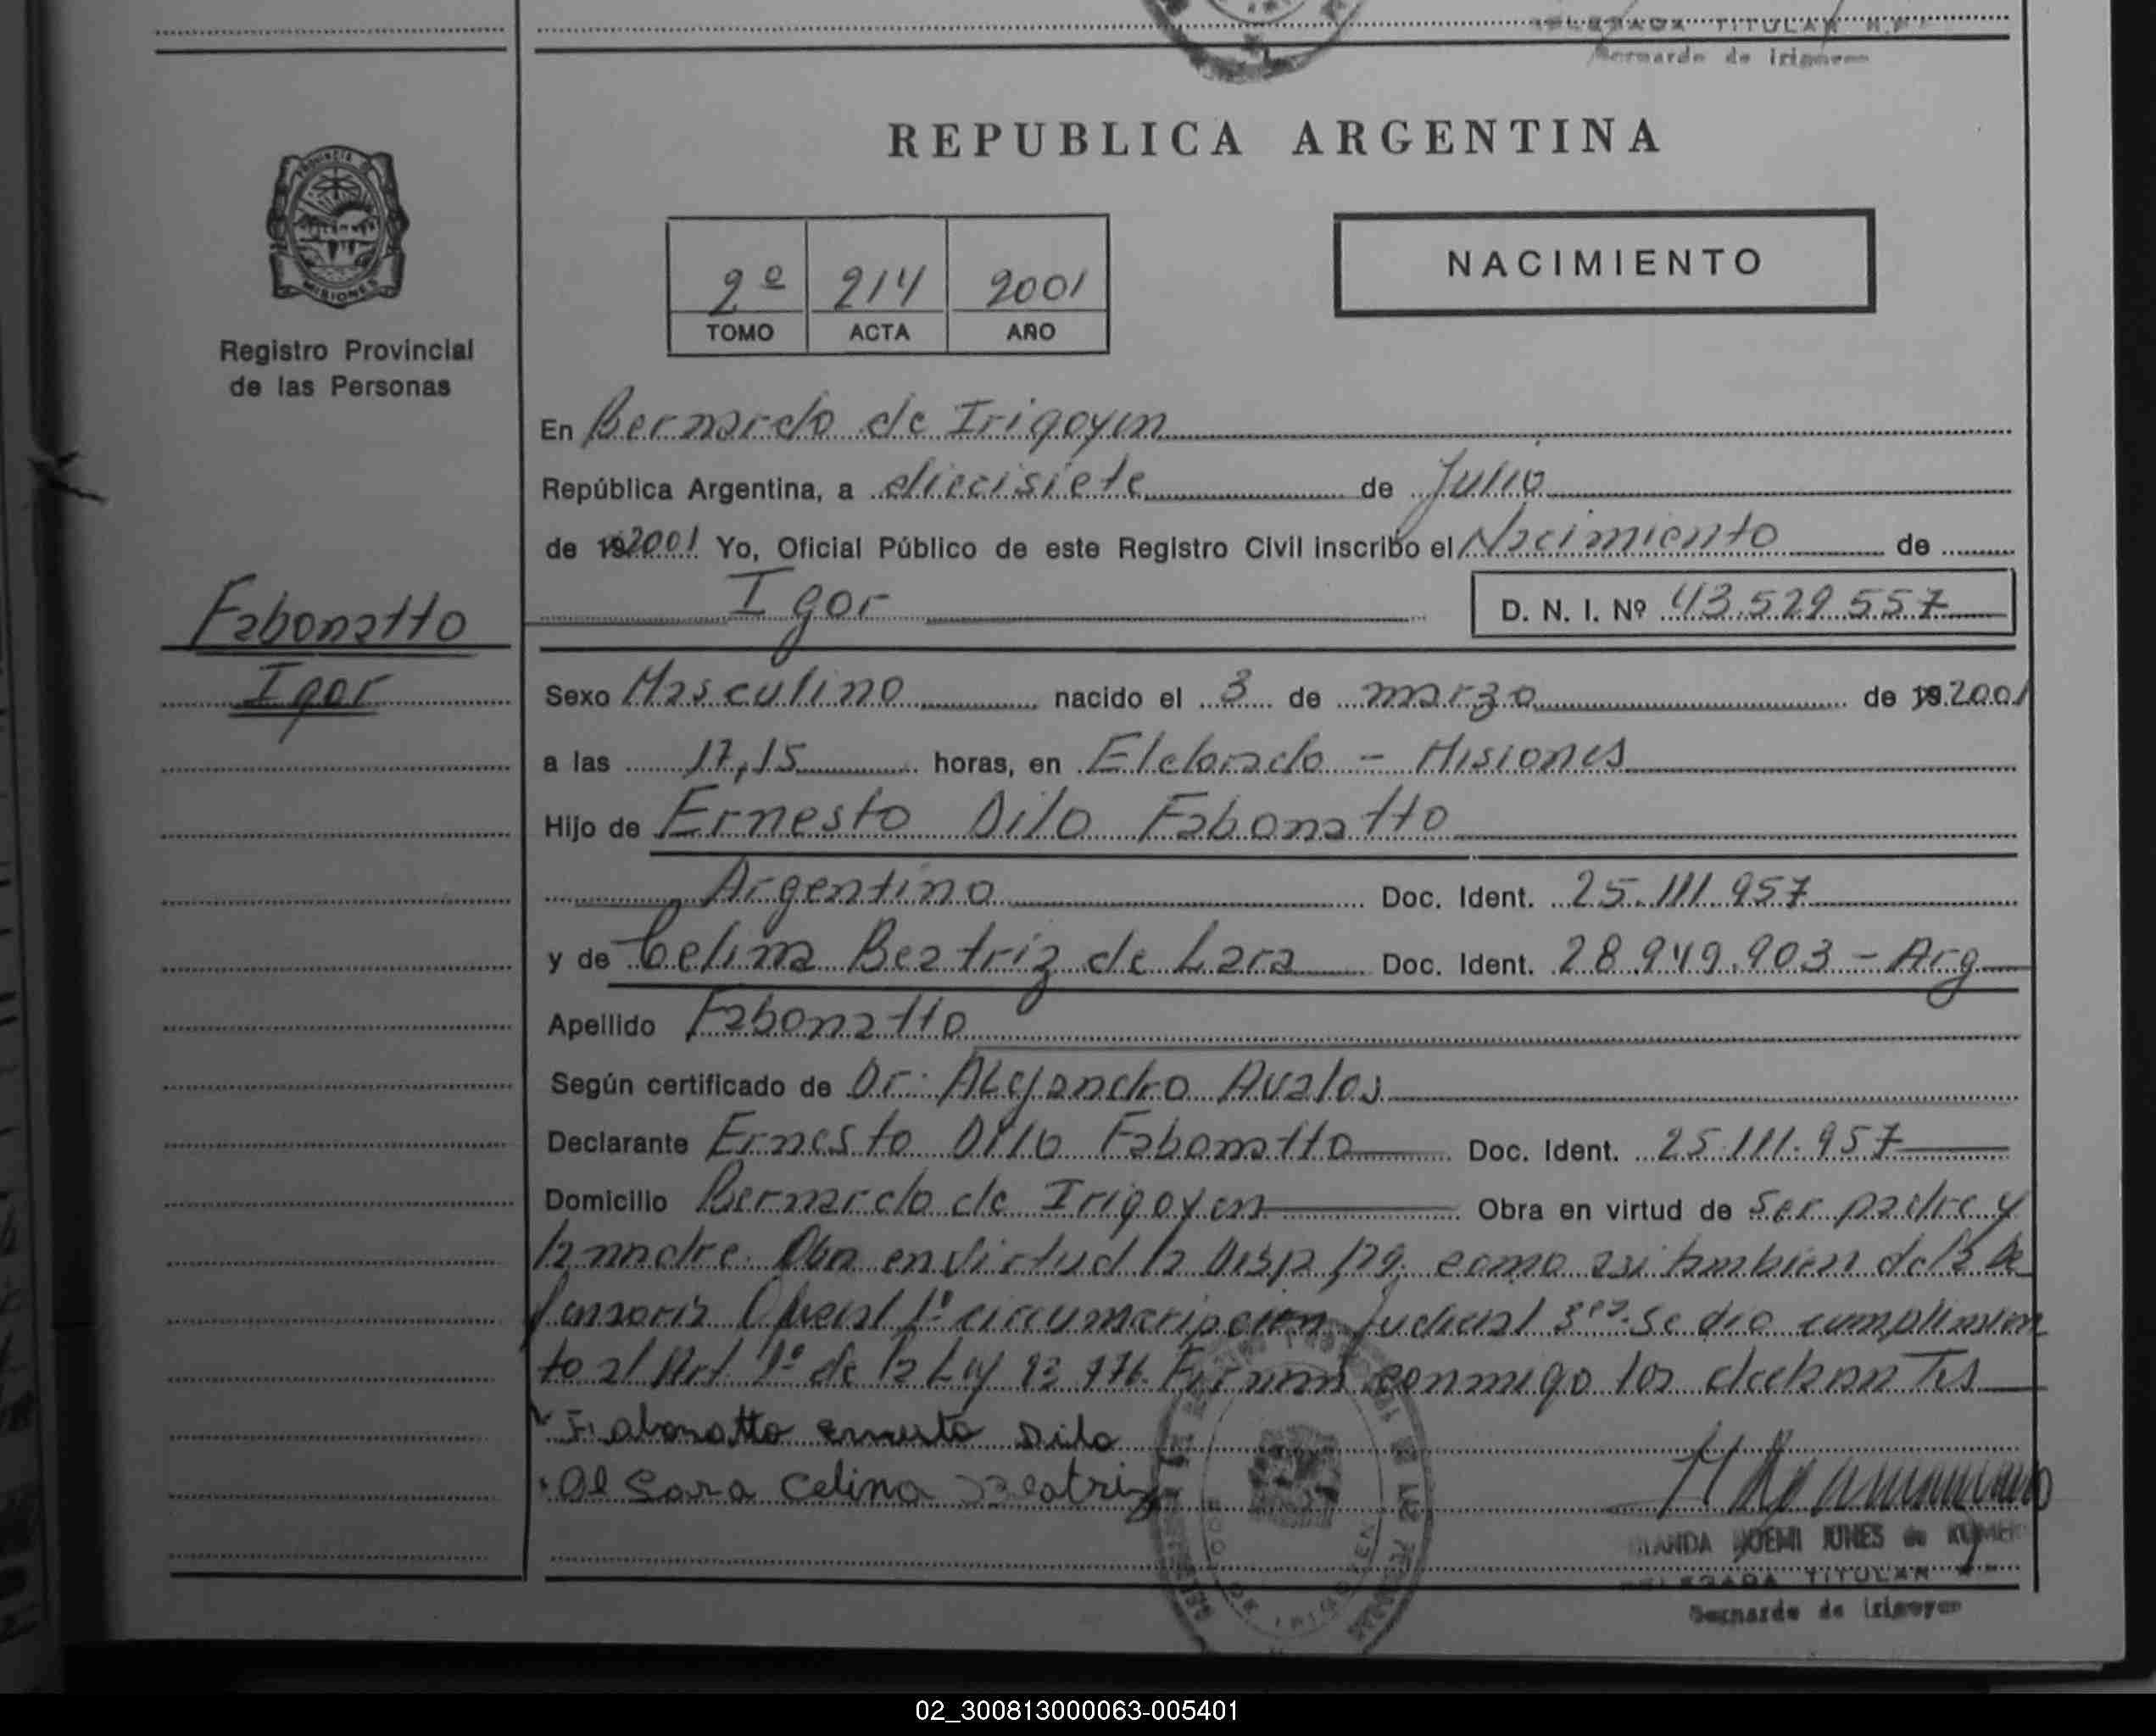 TITULAR
Bernardo de Irigoyen
REPUBLICA ARGENTINA
PROVINCIA
MISIONES
Registro Provincial
de las Personas
2º 214 2001
TOMO ACTA AÑO
NACIMIENTO
En Bernardo de Irigoyen
República Argentina, a diecisiete de Julio
de 192001 Yo, Oficial Público de este Registro Civil inscribo el Nacimiento de
Igor D. N. I. Nº 43.529.557
Fabonatto
Igor
Sexo Masculino nacido el 3 de marzo de 192001
a las 17,15 horas, en Eldorado - Misiones
Hijo de Ernesto Dilo Fabonatto
Argentino Doc. Ident. 25.111.957
y de Celina Beatriz de Lara Doc. Ident. 28.949.903 - Arg
Apellido Fabonatto
Según certificado de Dr. Alejandro Avalos
Declarante Ernesto Dilo Fabonatto Doc. Ident. 25.111.957
Domicilio Bernardo de Irigoyen Obra en virtud de ser padre y
la madre. en virtud la Disp como asi tambien de la De
fensoria Oficial 1º circumscripcion Judicial se dio cumplimien
to al Art. 1º de la Ley Firman conmigo los
Fabonatto Ernesto Dilo
De Lara Celina Beatriz
NOEMI JUNES de
DELEGADA TITULAR
Bernardo de Irigoyen
02_300813000063-005401